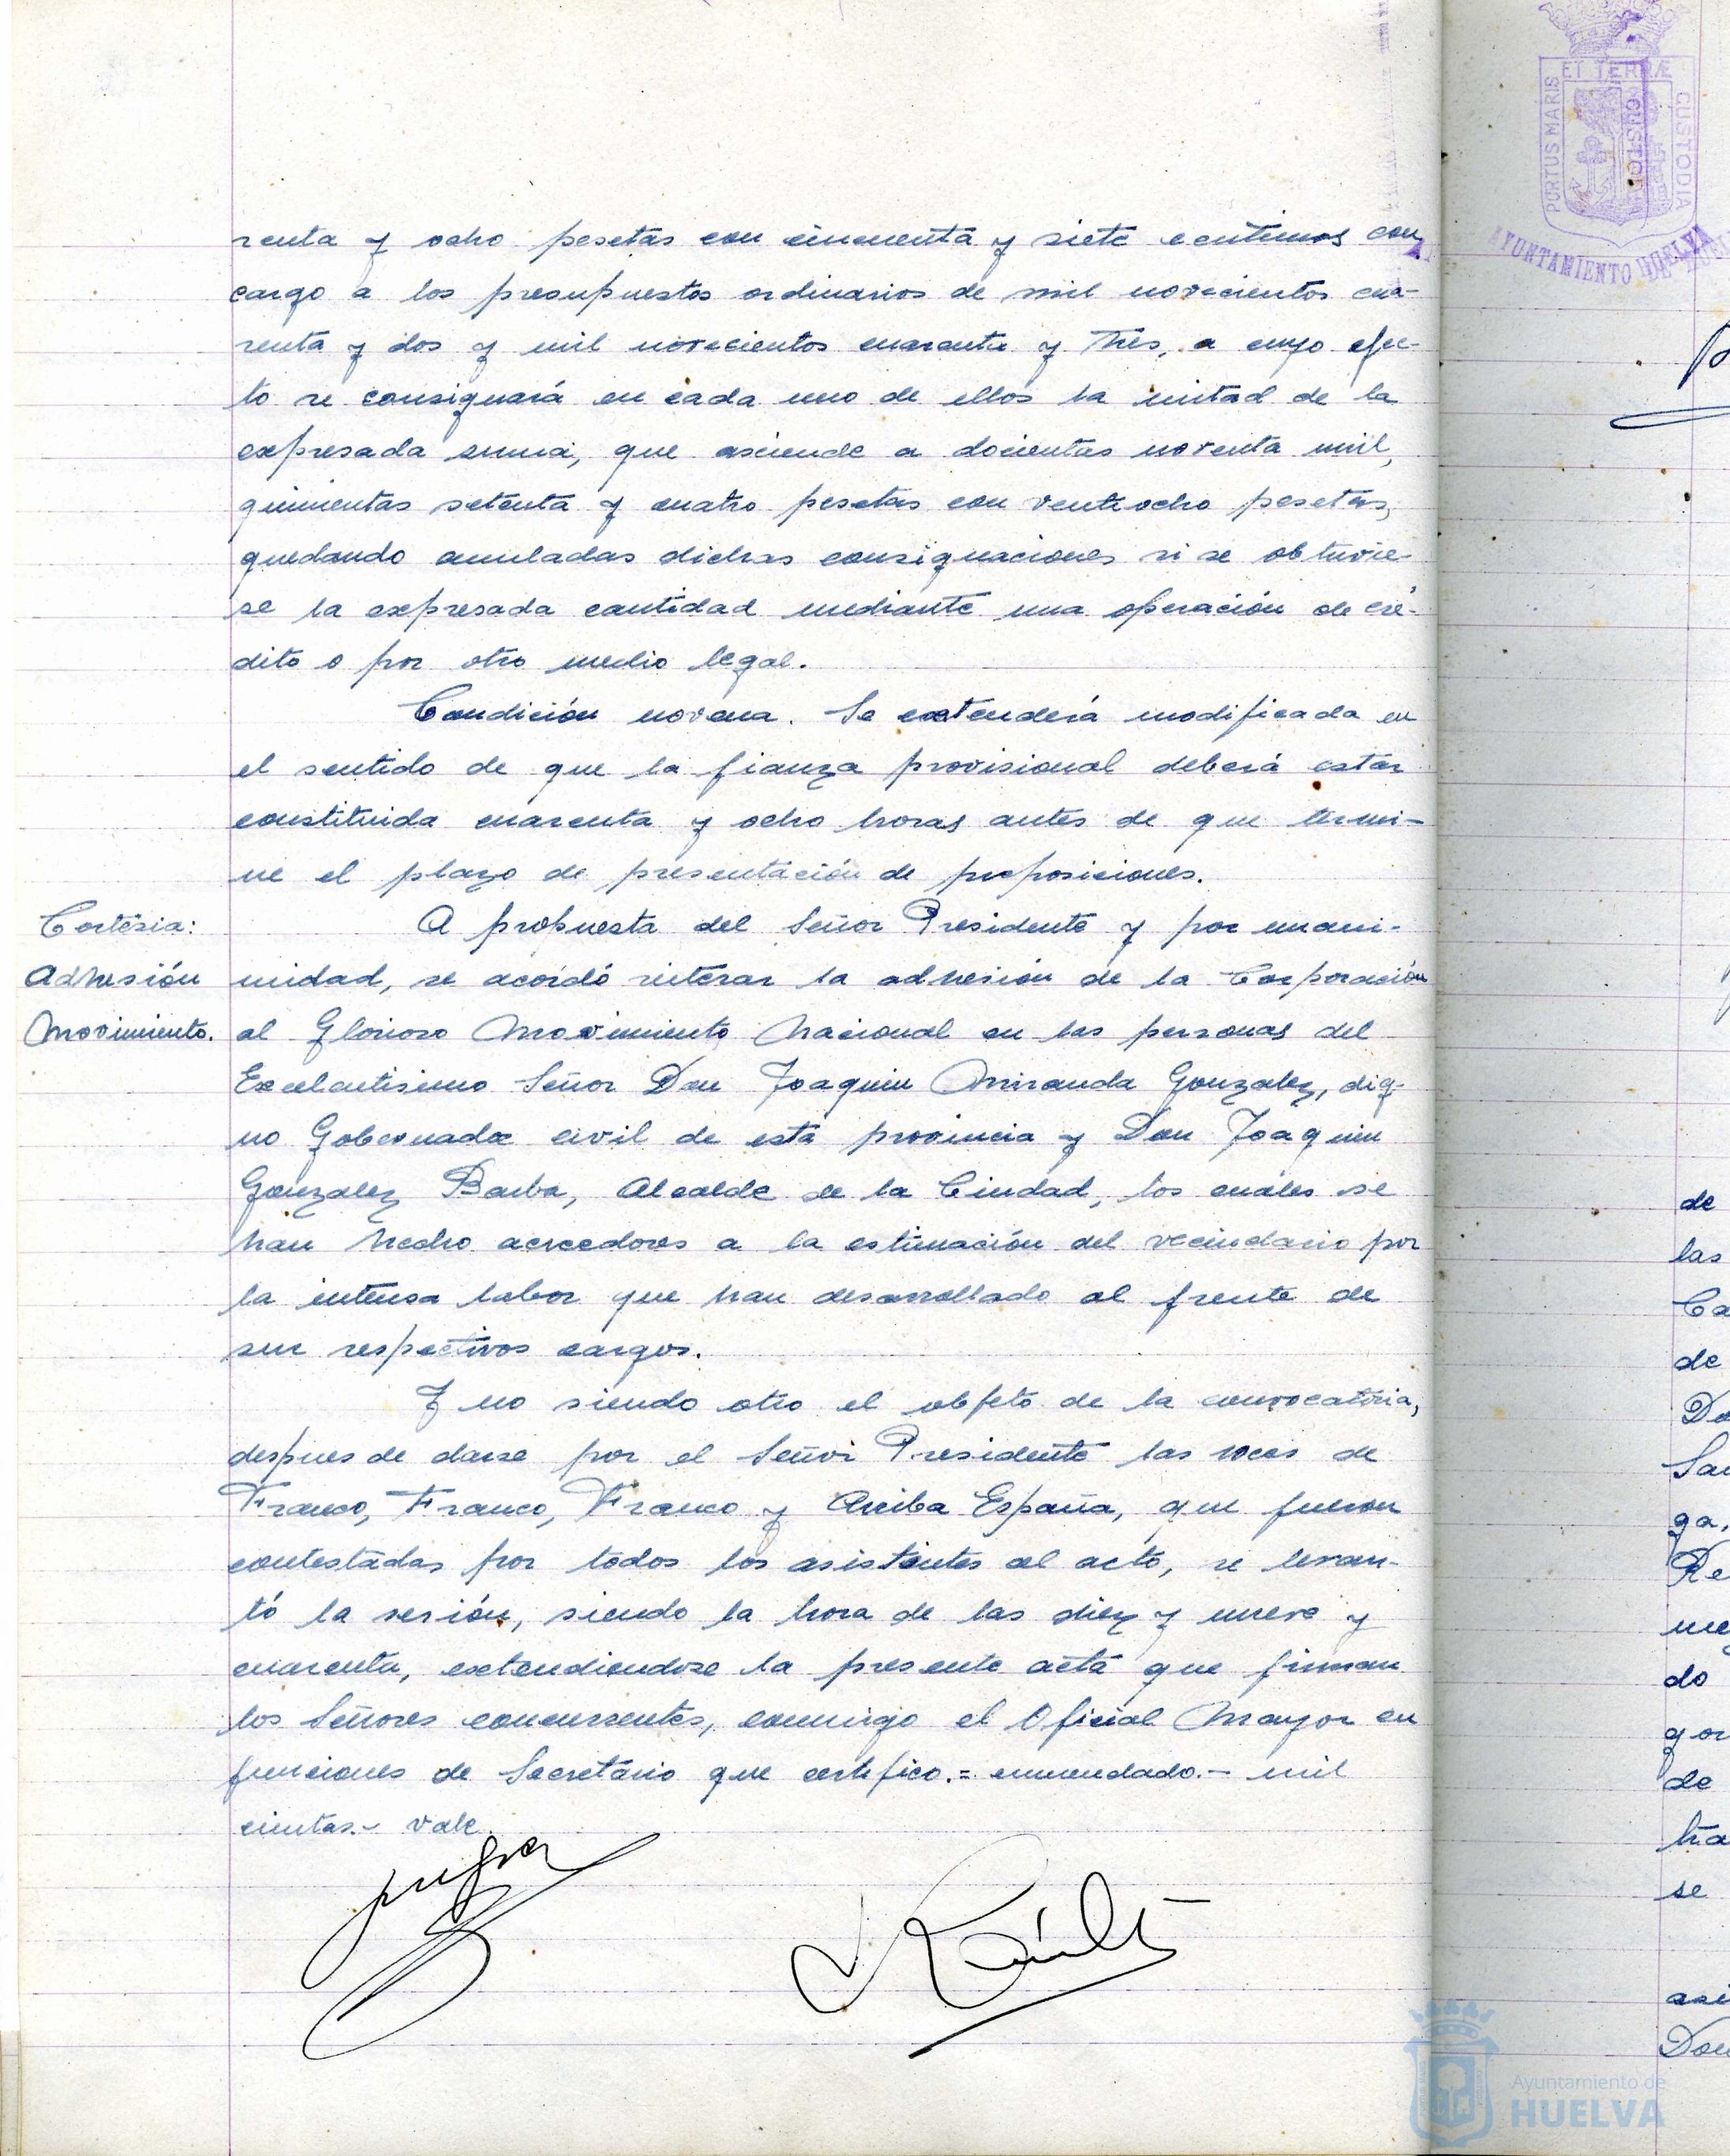 renta y ocho pesetas con cincuenta y siete centimos con
cargo a los presupuestos ordinarios de mil novecientos cua-
renta y dos y mil novecientos cuarenta y tres, a cuyo efec-
to se consignará en cada uno de ellos la mitad de la
expresada suma, que asciende a docientas noventa mil,
quinientas setenta y cuatro pesetas con ventiocho pesetas,
quedando anuladas dichas consignaciones si se obtuvie-
se la expresada cantidad mediante una operación de cré-
dito o por otro medio legal.
Condición novena. Se extenderá modificada en
el sentido de que la fianza provisional deberá estar
constituida cuarenta y ocho horas antes de que termi-
ne el plazo de presentación de proposiciones.
Cortesia:
Adhesión
Movimiento.
A propuesta del Señor Presidente y por unani-
midad, se acordó riterar la adhesión de la Corporación
al Glorioso Movimiento Nacional en las personas del
Excelentisimo Señor Don Joaquin Miranda Gonzalez, dig-
no Gobernador civil de esta provincia y Don Joaquin
Gonzalez Barba, Alcalde de la Ciudad, los cuáles se
han hecho acreedores a la estimación del vecindario por
la intensa labor que han desarrollado al frente de
sus respectivos cargos.
Y no siendo otro el objeto de la convocatoria,
despues de darse por el Señor Presidente las voces de
Franco, Franco, Franco y Arriba España, que fueron
contestadas por todos los asistentes al acto, se levan-
tó la sesión, siendo la hora de las diez y nueve y
cuarenta, extendiendose la presente acta que firman
los Señores concurrentes, conmigo el Oficial Mayor en
funciones de Secretario que certifico.= enmendado.- mil
cientas.- vale.
PORTUS MARIS
ET TERRÆ
CUSTODIA
AYUNTAMIENTO HUELVA
de
las
Ca
de
Do
Sa
ga,
Re
me
do
gor
de
tra
se
asi
Don
Ayuntamiento de
HUELVA